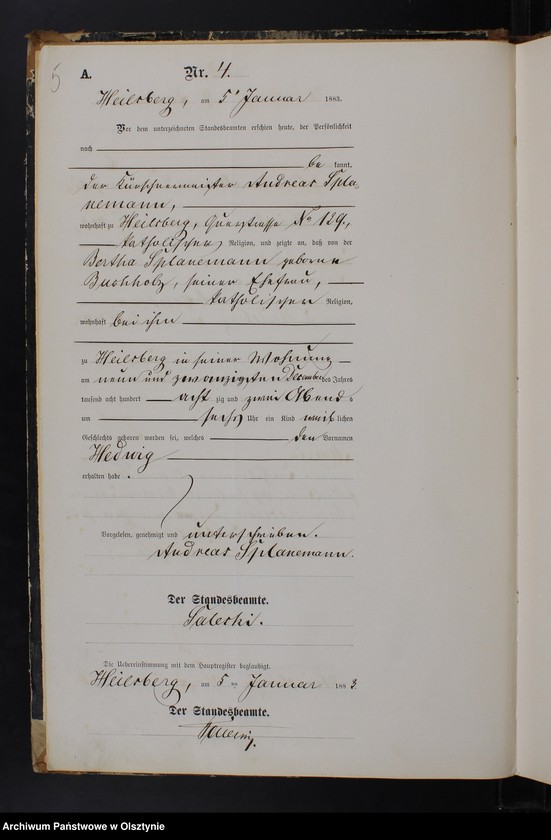 5
A. Nr. 4.
Heilsberg, am 5ten Januar 1883.
Vor dem unterzeichneten Standesbeamten erschien heute, der Persönlichkeit
nach
be kannt,
der Kürschnermeister Andreas Spla-
nemann,
wohnhaft zu Heilsberg, Querstrasse No 129,
katholischer Religion, und zeigte an, daß von der
Bertha Splanemann geborne
Buchholz, seiner Ehefrau,
katholischer Religion,
wohnhaft bei ihm
zu Heilsberg in seiner Wohnung
am neun und zwanzigsten December des Jahres
tausend acht hundert acht zig und zwei Abends
um sechs Uhr ein Kind weib lichen
Geschlechts geboren worden sei, welches den Vornamen
Hedwig
erhalten habe.
Vorgelesen, genehmigt und unterschrieben.
Andreas Splanemann.
Der Standesbeamte.
Die Uebereinstimmung mit dem Hauptregister beglaubigt.
Heilsberg, am 5ten Januar 1883.
Der Standesbeamte.
Archiwum Państwowe w Olsztynie